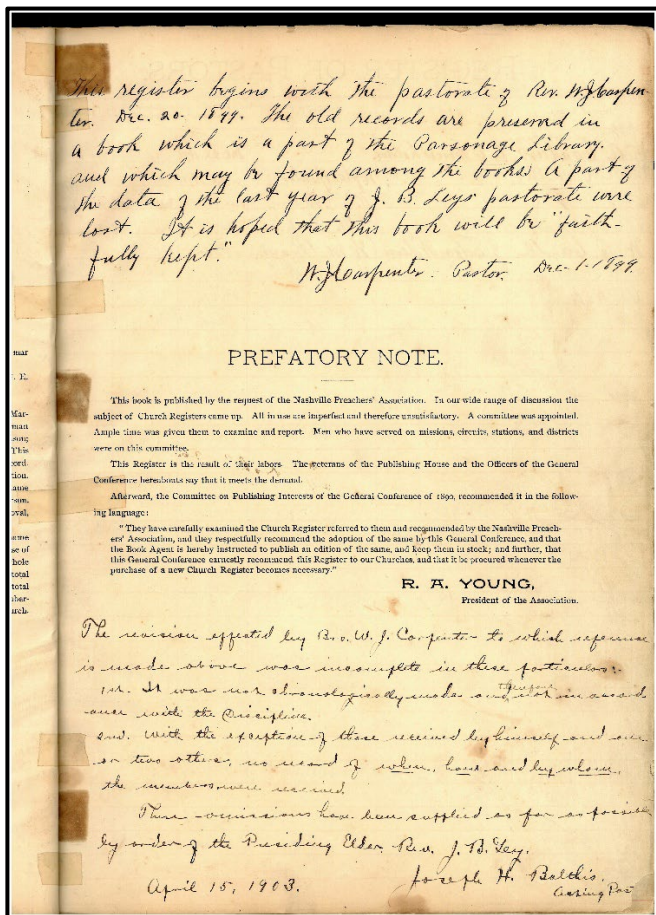 This register begins with the pastorate of Rev. W. J. Carpen-
ter. Dec. 20. 1899. The old records are preserved in
a book which is a part of the Parsonage Library.
and which may be found among the books. A part of
the data of the last year of J. B. Leys' pastorate were
lost. It is hoped that this book will be "faith-
fully kept."
W. J. Carpenter. Pastor. Dec-1-1899.
mar
. E.
PREFATORY NOTE.
This book is published by the request of the Nashville Preachers' Association. In our wide range of discussion the
subject of Church Registers came up. All in use are imperfect and therefore unsatisfactory. A committee was appointed.
Ample time was given them to examine and report. Men who have served on missions, circuits, stations, and districts
were on this committee.
This Register is the result of their labors. The veterans of the Publishing House and the Officers of the General
Conference hereabouts say that it meets the demand.
Afterward, the Committee on Publishing Interests of the General Conference of 1890, recommended it in the follow-
ing language:
"They have carefully examined the Church Register referred to them and recommended by the Nashville Preach-
ers' Association, and they respectfully recommend the adoption of the same by this General Conference, and that
the Book Agent is hereby instructed to publish an edition of the same, and keep them in stock; and further, that
this General Conference earnestly recommend this Register to our Churches, and that it be procured whenever the
purchase of a new Church Register becomes necessary."
R. A. YOUNG,
President of the Association.
The revision effected by Bro. W. J. Carpenter to which reference
is made above was incomplete in these particulars:-
1st. It was not chronologically made and therefore not in accord
ance with the Discipline.
2nd. With the exception of those received by himself and one
or two others, no record of when, how and by whom,
the members were received.
These omissions have been supplied as far as possible
by order of the Presiding Elder, Rev. J. B. Ley.
Joseph H. Balthis.
April 15, 1903.
Acting Pas